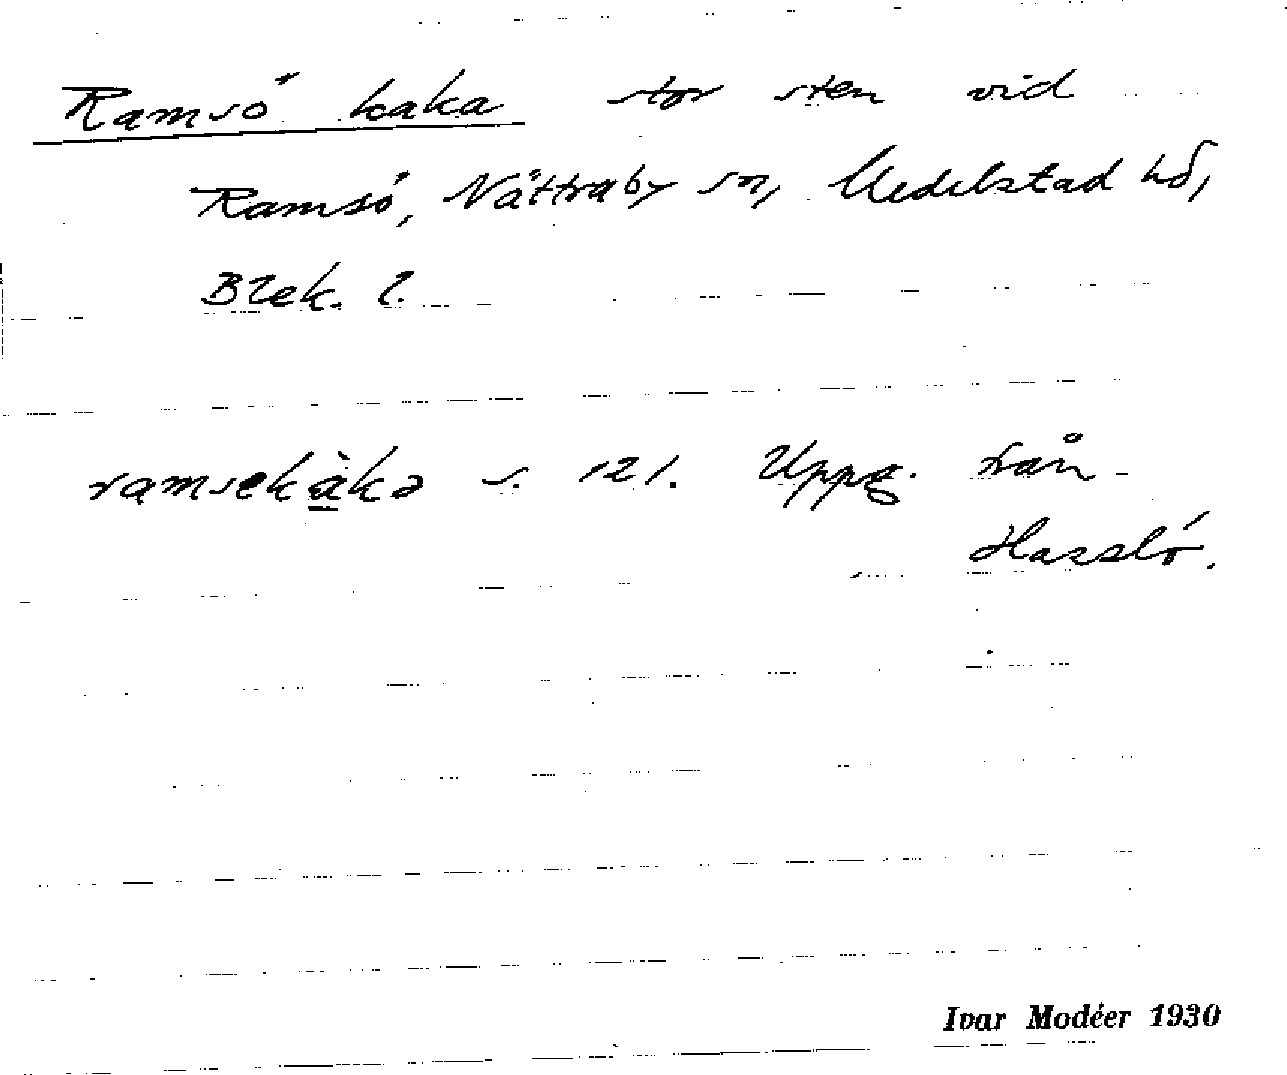 Ramsö kaka stor sten vid
Ramsö, Nättraby sn, Medelstad hd,
Blek. l.
ramsekàkə s. 121. Uppg. från
Hasslö.
Ivar Modéer 1930